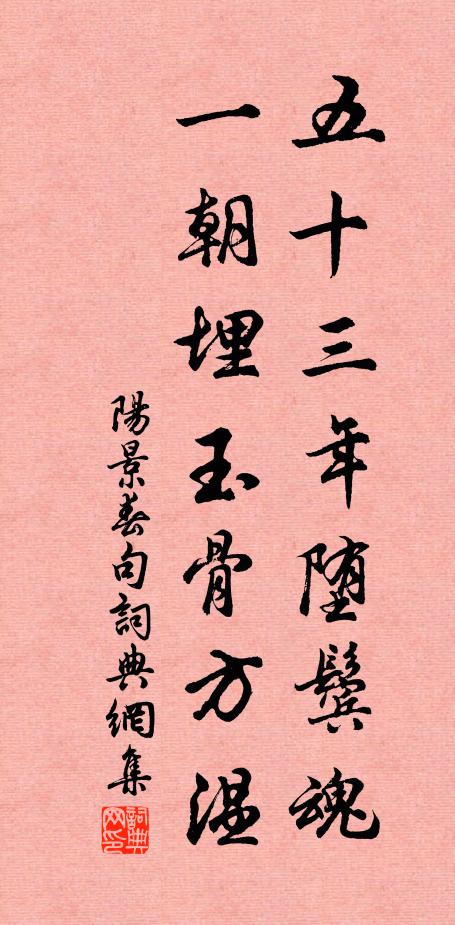 五十三年堕鬓魂
一朝埋玉骨方温
陽景春句詞典網集
詞典网印